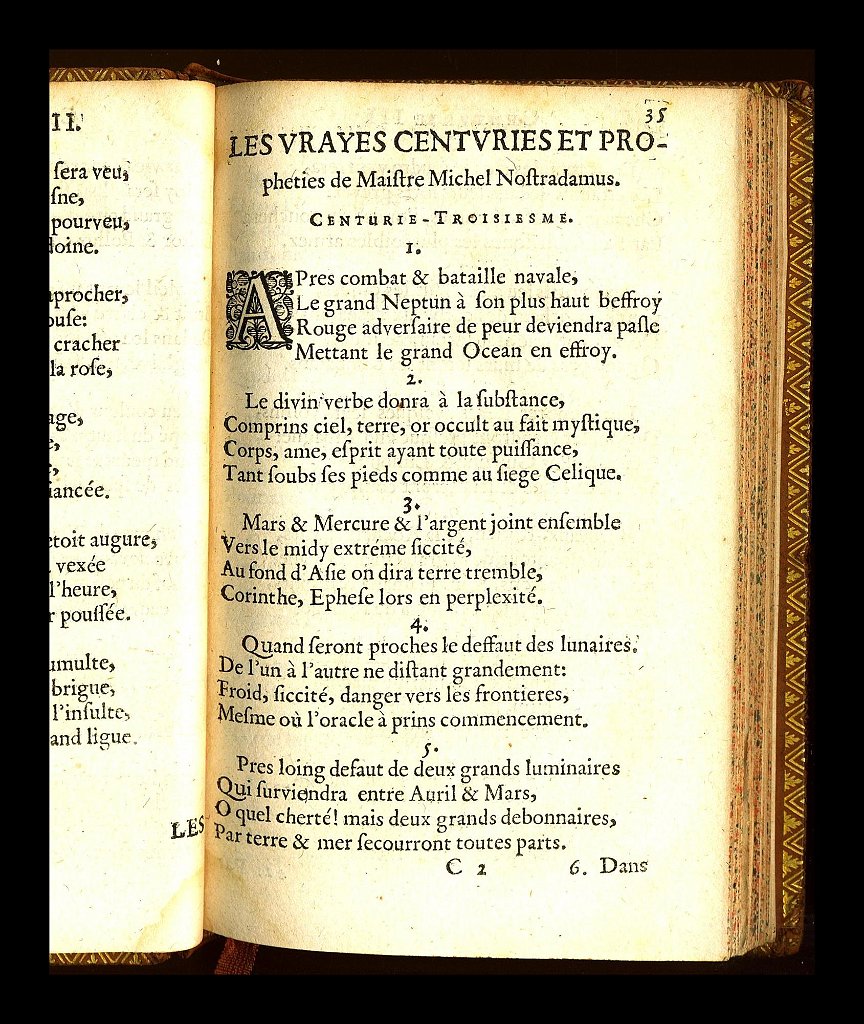 II.
sera veu,
sne,
pourveu,
doine.
aprocher,
ouse:
cracher
la rose,
age,
e,
iancée.
etoit augure,
vexée
l'heure,
r poussée.
umulte,
brigue,
l'insulte,
and ligue.
LES
35
LES VRAYES CENTVRIES ET PRO-
pheties de Maistre Michel Nostradamus.
CENTURIE-TROISIESME.
1.
APres combat & bataille navale,
Le grand Neptun à son plus haut beffroy
Rouge adversaire de peur deviendra pasle
Mettant le grand Ocean en effroy.
2.
Le divin verbe donra à la substance,
Comprins ciel, terre, or occult au fait mystique,
Corps, ame, esprit ayant toute puissance,
Tant soubs ses pieds comme au siege Celique.
3.
Mars & Mercure & l'argent joint ensemble
Vers le midy extréme siccité,
Au fond d'Asie on dira terre tremble,
Corinthe, Ephese lors en perplexité.
4.
Quand seront proches le deffaut des lunaires.
De l'un à l'autre ne distant grandement:
Froid, siccité, danger vers les frontieres,
Mesme où l'oracle à prins commencement.
5.
Pres loing defaut de deux grands luminaires
Qui surviendra entre Auril & Mars,
O quel cherté! mais deux grands debonnaires,
Par terre & mer secourront toutes parts.
C 2
6. Dans